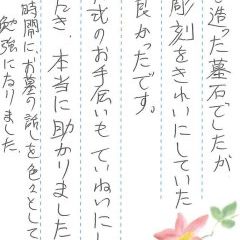 造った墓石でしたが
彫刻をきれいにしていた
良かったです。
式のお手伝いもていねいにし
だき、本当に助かりました
時間に、お墓の話しを色々として
勉強になりました。